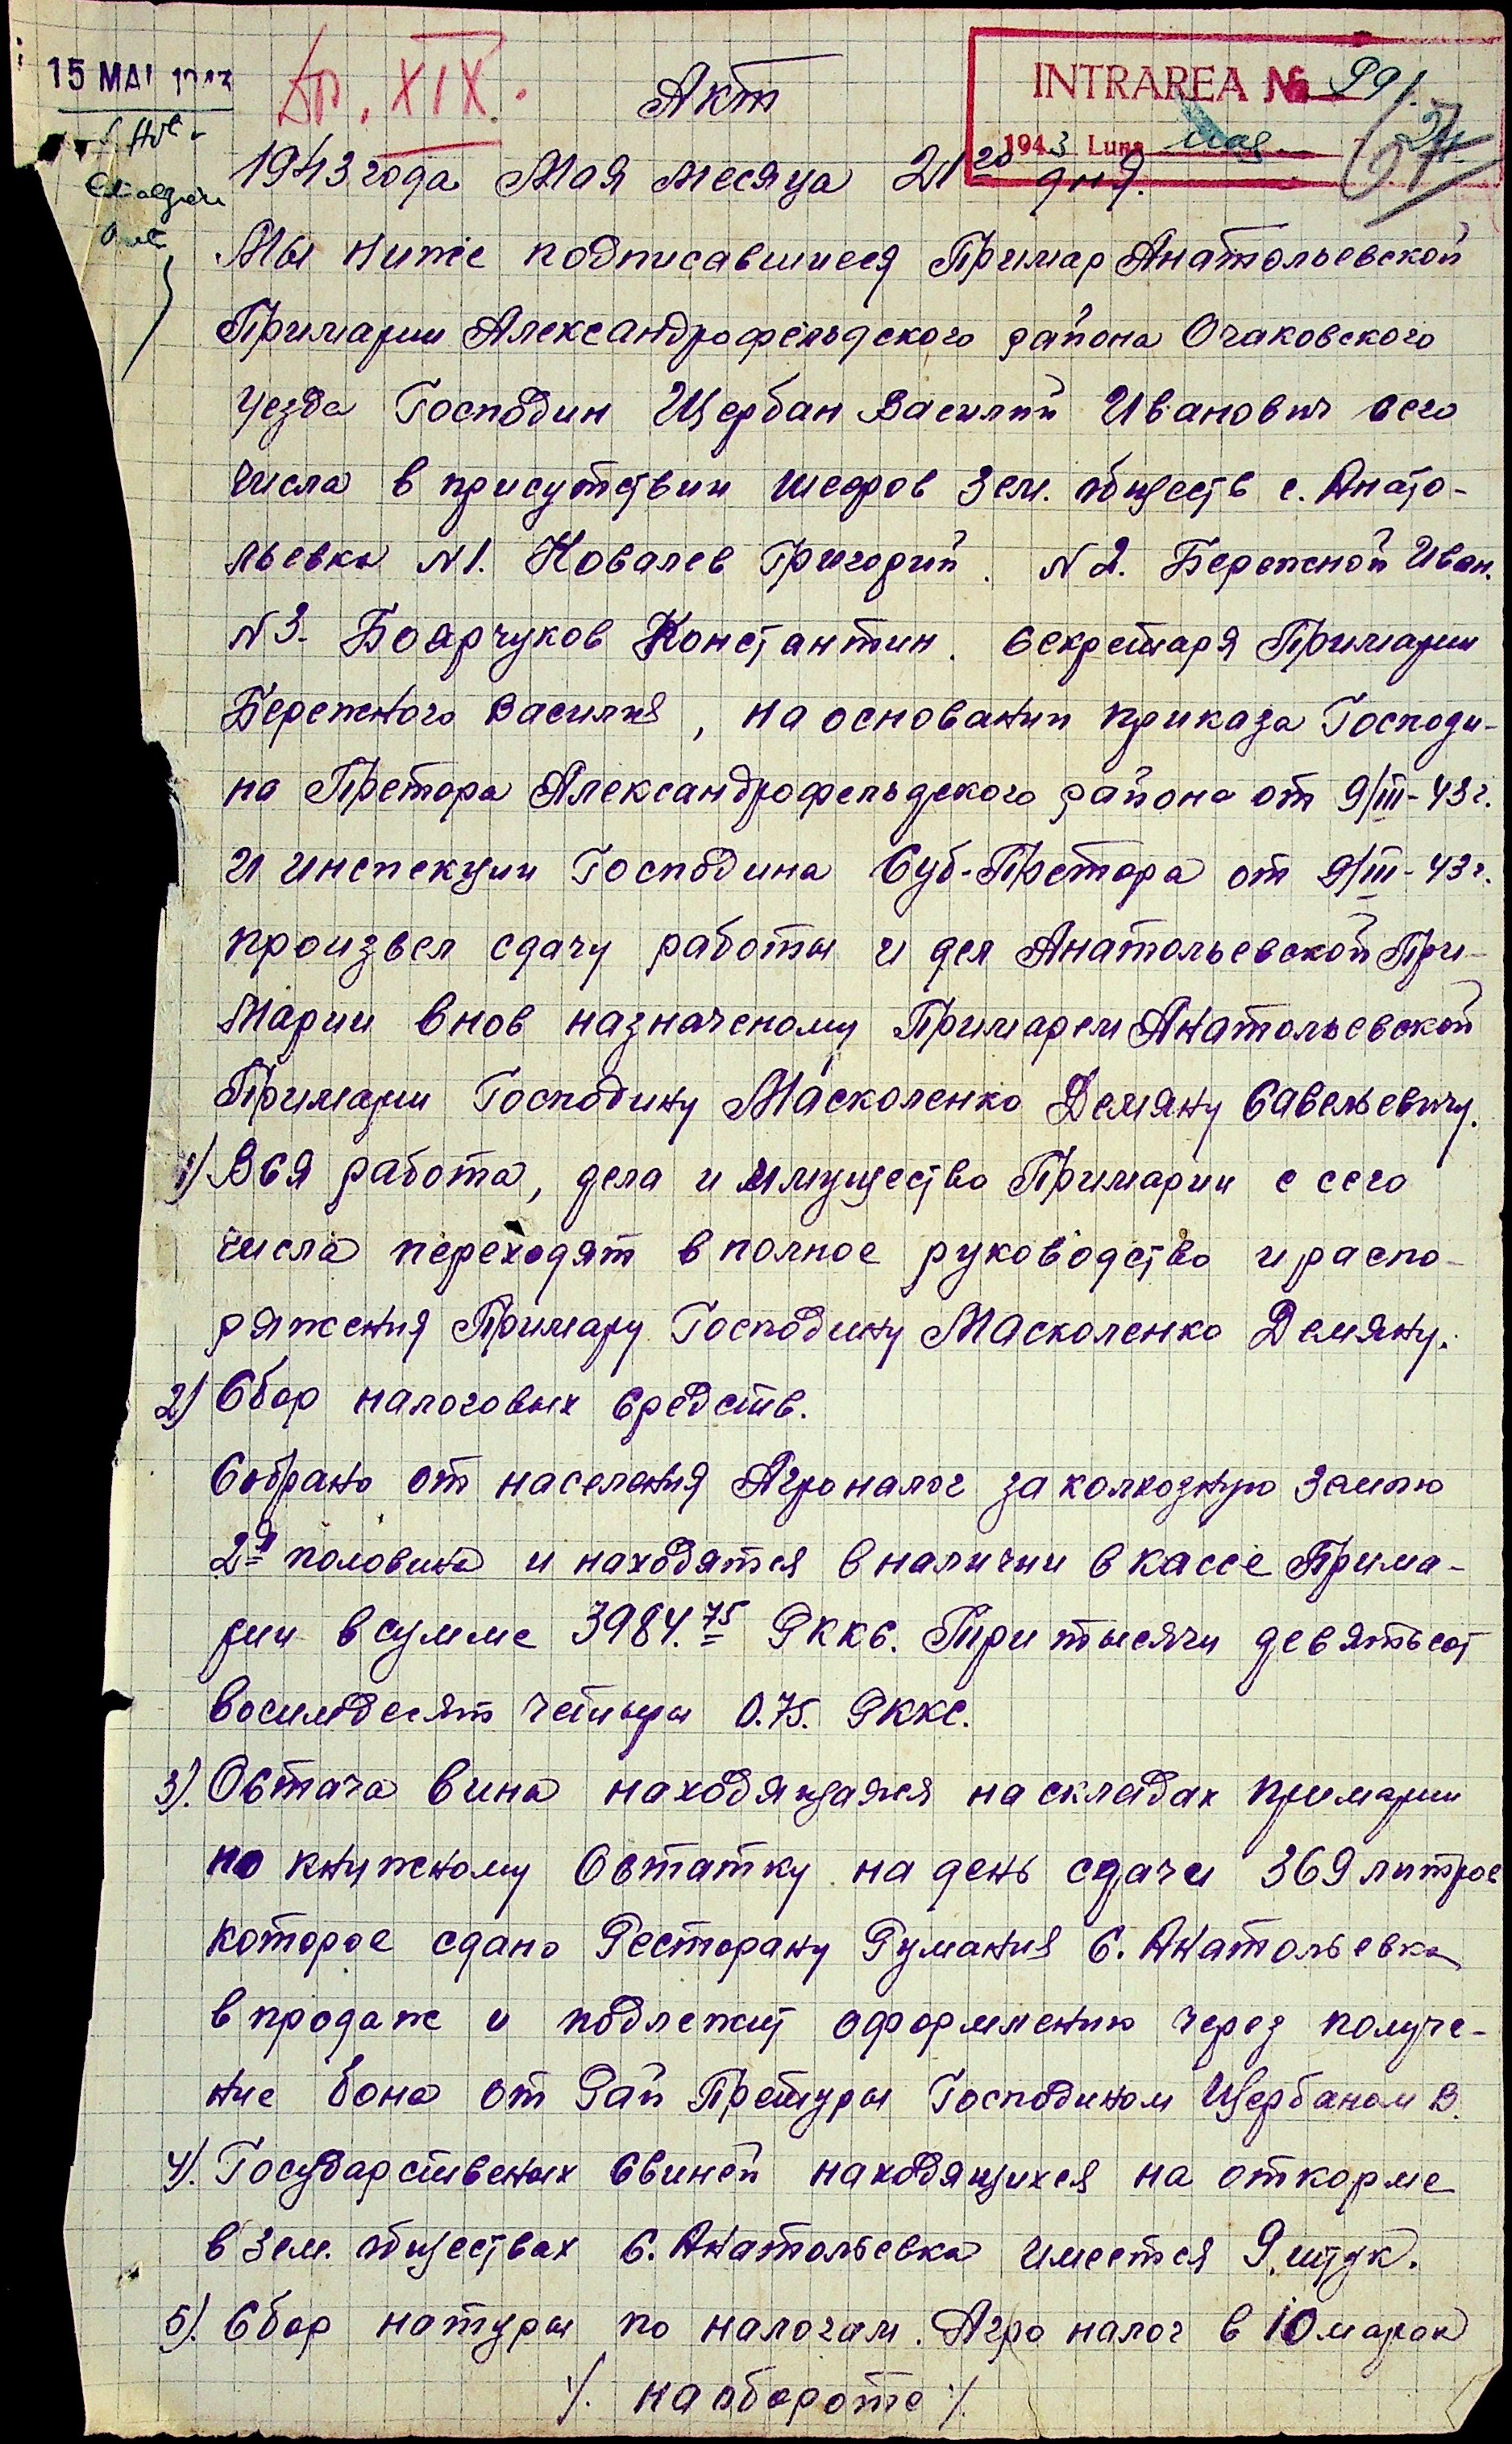 15 MAI 1943
XIX.
INTRAREA № 99/.
1943 Luna мая
Акт
1943 года Мая месяца 21го дня.
Мы ниже подписавшиеся Примар Анатольевской
Примарии Александрофельдского района Очаковского
уезда Господин Щербан Василий Иванович сего
числа в присутствии шефов Зем. обществ с. Анато-
льевка N1. Ковалев Григорий. N2. Бережной Иван.
N3. Боярчуков Константин. Секретаря Примарии
Бережного Василия, на основании приказа Господи-
на Претора Александрофельдского района от 9/III-43г.
и инспекции Господина Суб-Претора от 9/III-43г.
произвел сдачу работы и дел Анатольевской При-
марии внов назначеному Примарем Анатольевской
Примарии Господину Масколенко Демяну Савельевичу.
1) Вся работа, дела и имущество Примарии с сего
числа переходят в полное руководство и распо-
ряжения Примару Господину Масколенко Демяну.
2) Сбор налоговых средств.
Собрано от населения Агроналог за колхозную землю
2я половина и находятся в наличии в кассе Прима-
рии в сумме 3984.75 РККС. Три тысячи девятьсот
восимдесят четыры 0.75. РККС.
3). Остача вина находящаяся на складах примарии
по книжному Остатку на день сдачи 369 литров
которое сдано Ресторану Румания С. Анатольевка
в продаж и подлежит оформлению через получе-
ние бона от Рай Претуры Господином Щербаном В.
4). Государственых Свиней находящихся на откорме
в Зем. обществах С. Анатольевка имеется 9. штук.
5). Сбор натуры по налогам. Агро налог в 10 марок
./. на обороте ./.